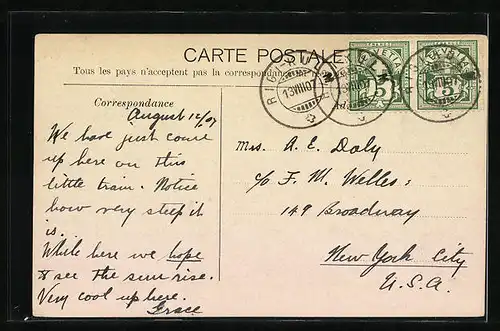 CARTE POSTALE
Tous les pays n'acceptent pas la correspondance
Correspondance
August 12/07
We have just come
up here on this
little train. Notice
how very steep it
is.
While here we hope
to see the sun rise.
Very cool up here.
Grace
RIGI-KULM
13 VIII 07
HELVETIA
FRANCO
5
Mrs. A. E. Daly
c/o F. M. Welles:
149 Broadway
New York City
U.S.A.